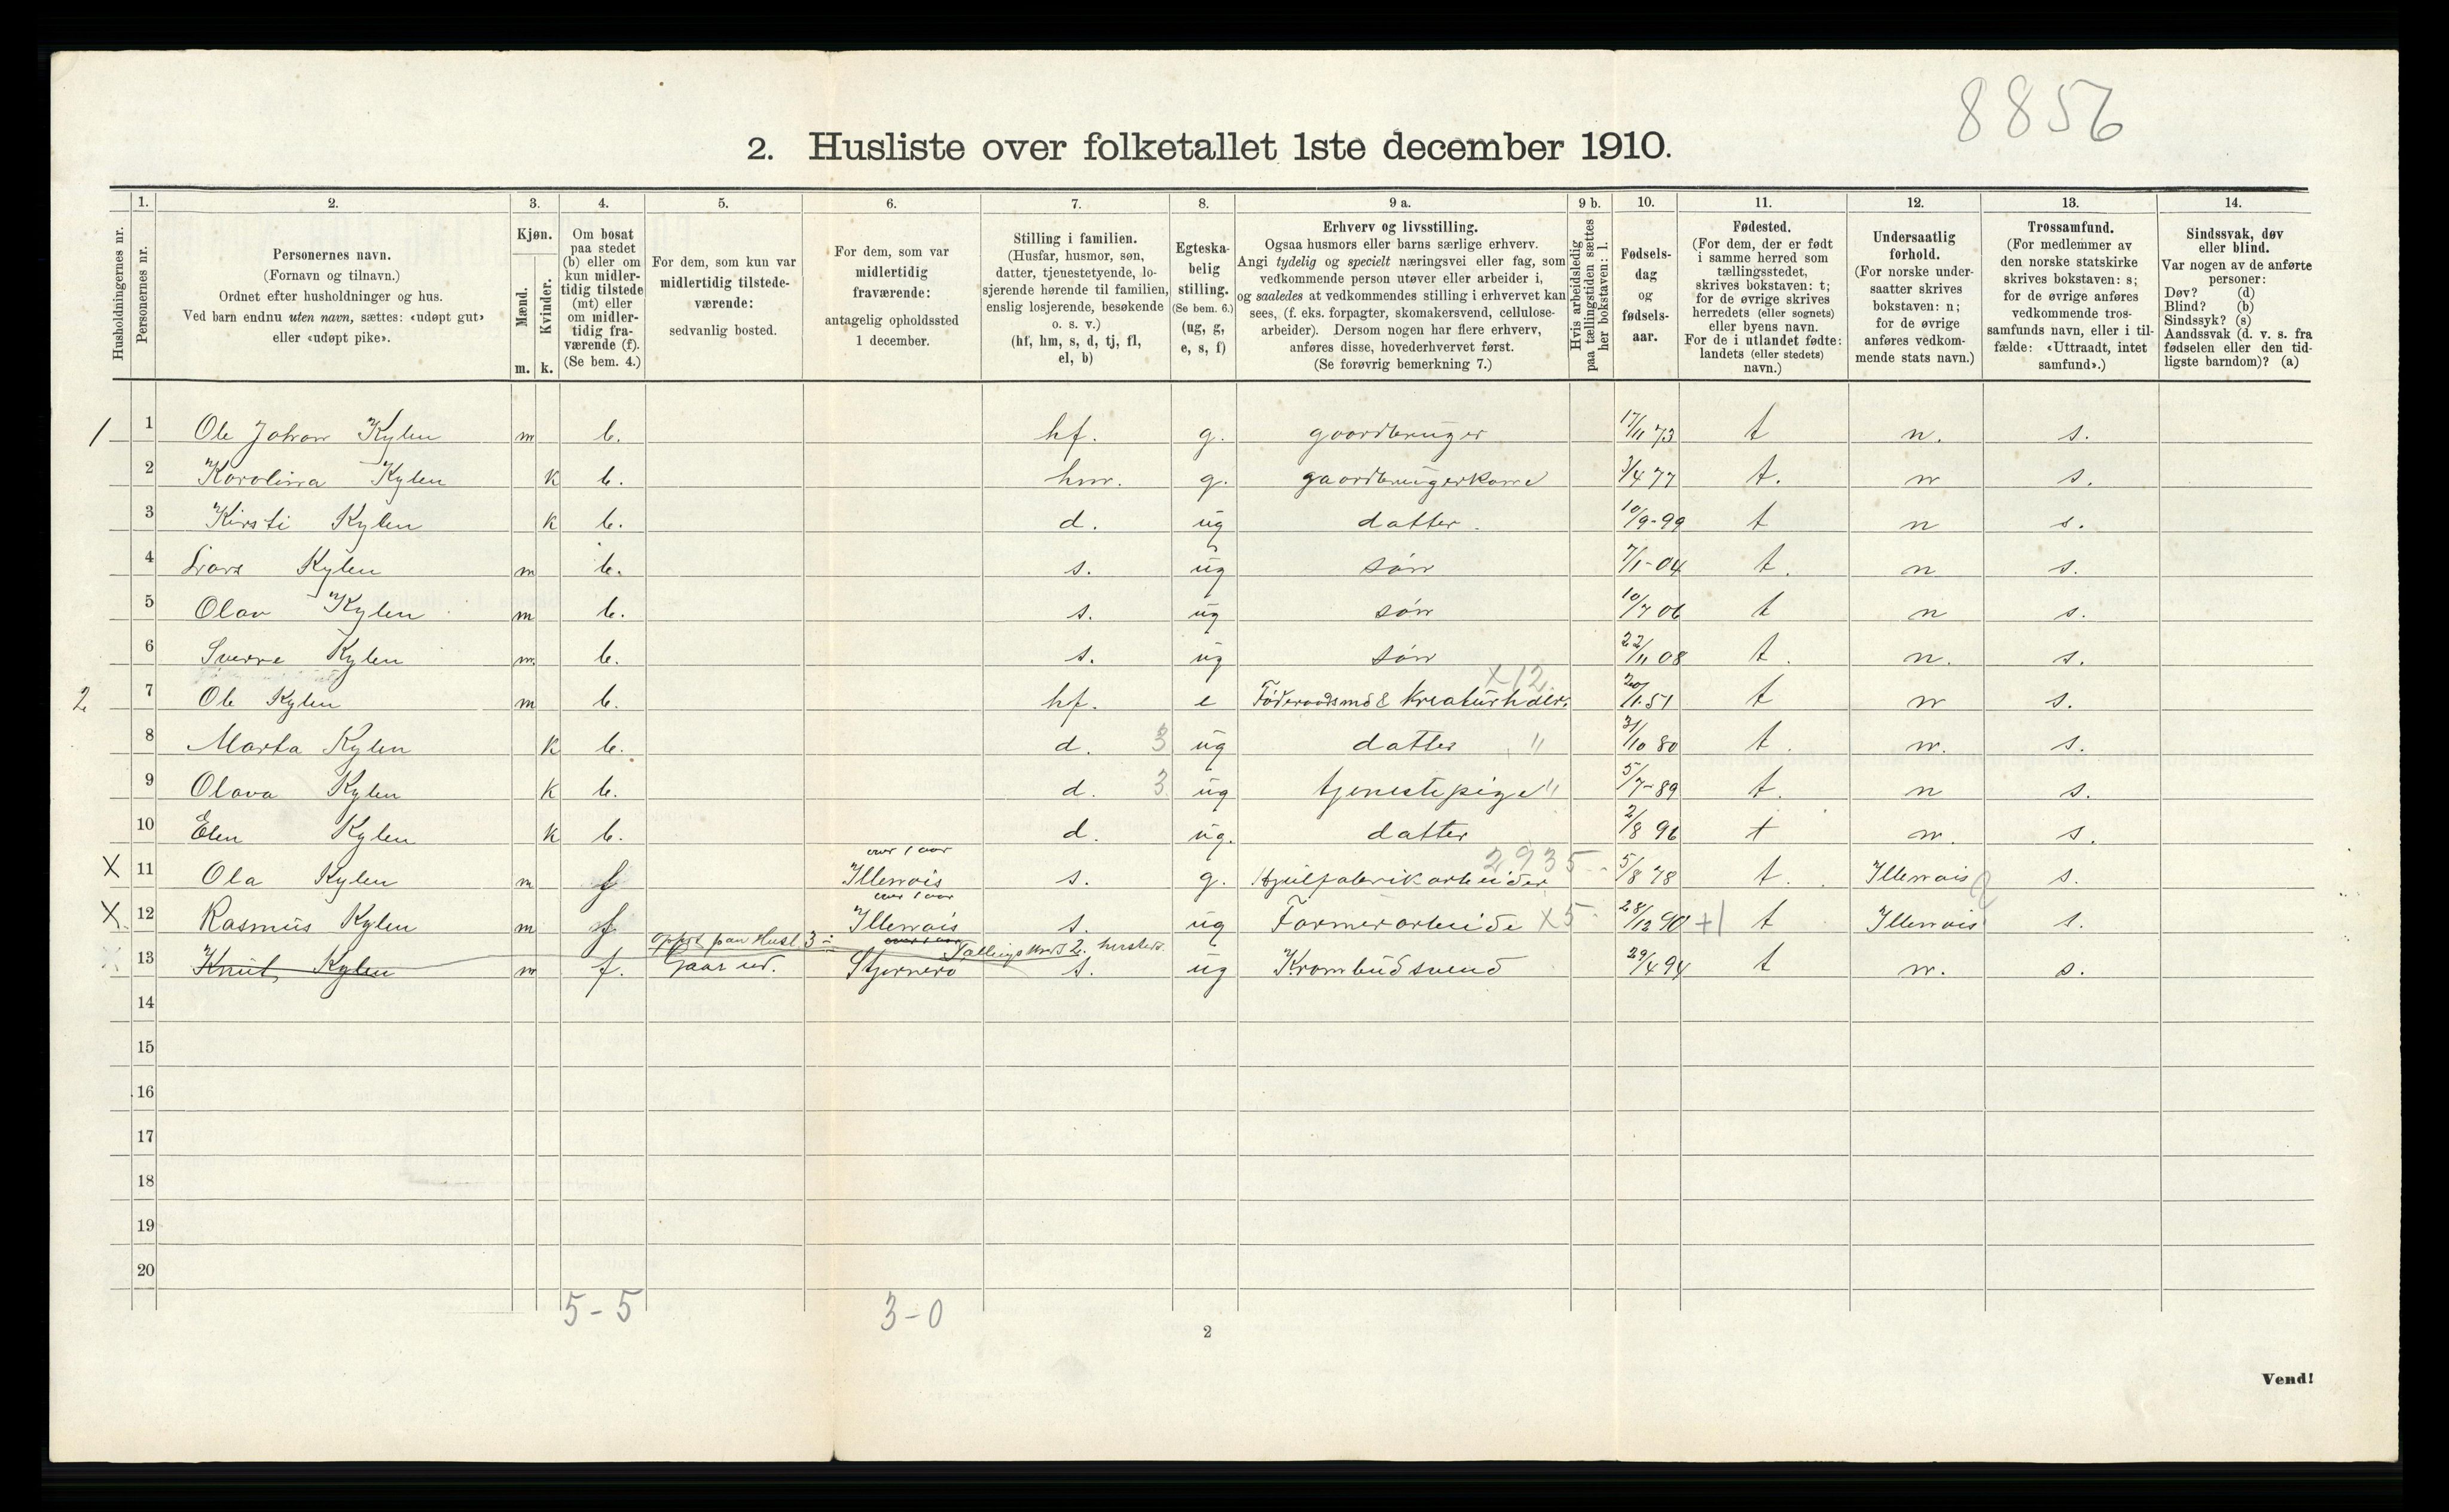 8856
2. Husliste over folketallet 1ste december 1910.
Husholdningernes nr.
1.
Personernes nr.
2.
Personernes navn.
(Fornavn og tilnavn.)
Ordnet efter husholdninger og hus.
Ved barn endnu uten navn, sættes: «udøpt gut»
eller «udøpt pike».
3.
Kjøn.
Mænd.
Kvinder.
m. k.
4.
Om bosat
paa stedet
(b) eller om
kun midler-
tidig tilstede
(mt) eller
om midler-
tidig fra-
værende (f).
(Se bem. 4.)
5.
For dem, som kun var
midlertidig tilstede-
værende:
sedvanlig bosted.
6.
For dem, som var
midlertidig
fraværende:
antagelig opholdssted
1 december.
7.
Stilling i familien.
(Husfar, husmor, søn,
datter, tjenestetyende, lo-
sjerende hørende til familien,
enslig losjerende, besøkende
o. s. v.)
(hf, hm, s, d, tj, fl,
el, b)
8.
Egteska-
belig
stilling.
(Se bem. 6.)
(ug, g,
e, s, f)
9 a.
Erhverv og livsstilling.
Ogsaa husmors eller barns særlige erhverv.
Angi tydelig og specielt næringsvei eller fag, som
vedkommende person utøver eller arbeider i,
og saaledes at vedkommendes stilling i erhvervet kan
sees, (f. eks. forpagter, skomakersvend, cellulose-
arbeider). Dersom nogen har flere erhverv,
anføres disse, hovederhvervet først.
(Se forøvrig bemerkning 7.)
9 b.
Hvis arbeidsledig
paa tællingstiden sættes
her bokstaven: l.
10.
Fødsels-
dag
og
fødsels-
aar.
11.
Fødested.
(For dem, der er født
i samme herred som
tællingsstedet,
skrives bokstaven: t;
for de øvrige skrives
herredets (eller sognets)
eller byens navn.
For de i utlandet fødte:
landets (eller stedets)
navn.)
12.
Undersaatlig
forhold.
(For norske under-
saatter skrives
bokstaven: n;
for de øvrige
anføres vedkom-
mende stats navn.)
13.
Trossamfund.
(For medlemmer av
den norske statskirke
skrives bokstaven: s;
for de øvrige anføres
vedkommende tros-
samfunds navn, eller i til-
fælde: «Uttraadt, intet
samfund».)
14.
Sindssvak, døv
eller blind.
Var nogen av de anførte
personer:
Døv? (d)
Blind? (b)
Sindssyk? (s)
Aandssvak (d. v. s. fra
fødselen eller den tid-
ligste barndom)? (a)
1 1 Ole Johan Kylen m b. hf. g. gaardbruger 17/11 73 t n. s.
2 Karolina Kylen k b. hm. g. gaardbrugerkone 3/4 77 t. n s.
3 Kirsti Kylen k b. d. ug datter. 10/9-99 t n s.
4 Lars Kylen m b. s. ug søn 7/1-04 t. n s.
5 Olav Kylen m b. s. ug søn 10/7 06 t n s.
6 Sverre Kylen m. b. s. ug søn 22/11 08 t. n. s.
X12
2 7 Ole Kylen m b. hf. e Føderaadsmd & Kreaturhdlr. 20/11 51 t n s.
8 Marta Kylen k b. d. 3 ug datter " 31/10 80 t. n. s.
9 Olava Kylen k b. d. 3 ug tjenestepige " 5/7-89 t. n s.
10 Elen Kylen k b. d. ug. datter 2/8 96 t n. s.
over 1 aar
2935
X 11 Ola Kylen m f Illenois s. g. Hjulfabrikarbeider 5/8 78 t. Illenois s.
over 1 aar
X 12 Rasmus Kylen m f Illenois s. ug Farmerarbeide X5 28/12 90 +1 t Illenois s.
over 1 aar
X 13 Knut Kylen m f. Gaar ud. s. ug Krambudsvend 29/4 94 t n. s.
14
15
16
17
18
19
20
5-5 3-0
2
Vend!